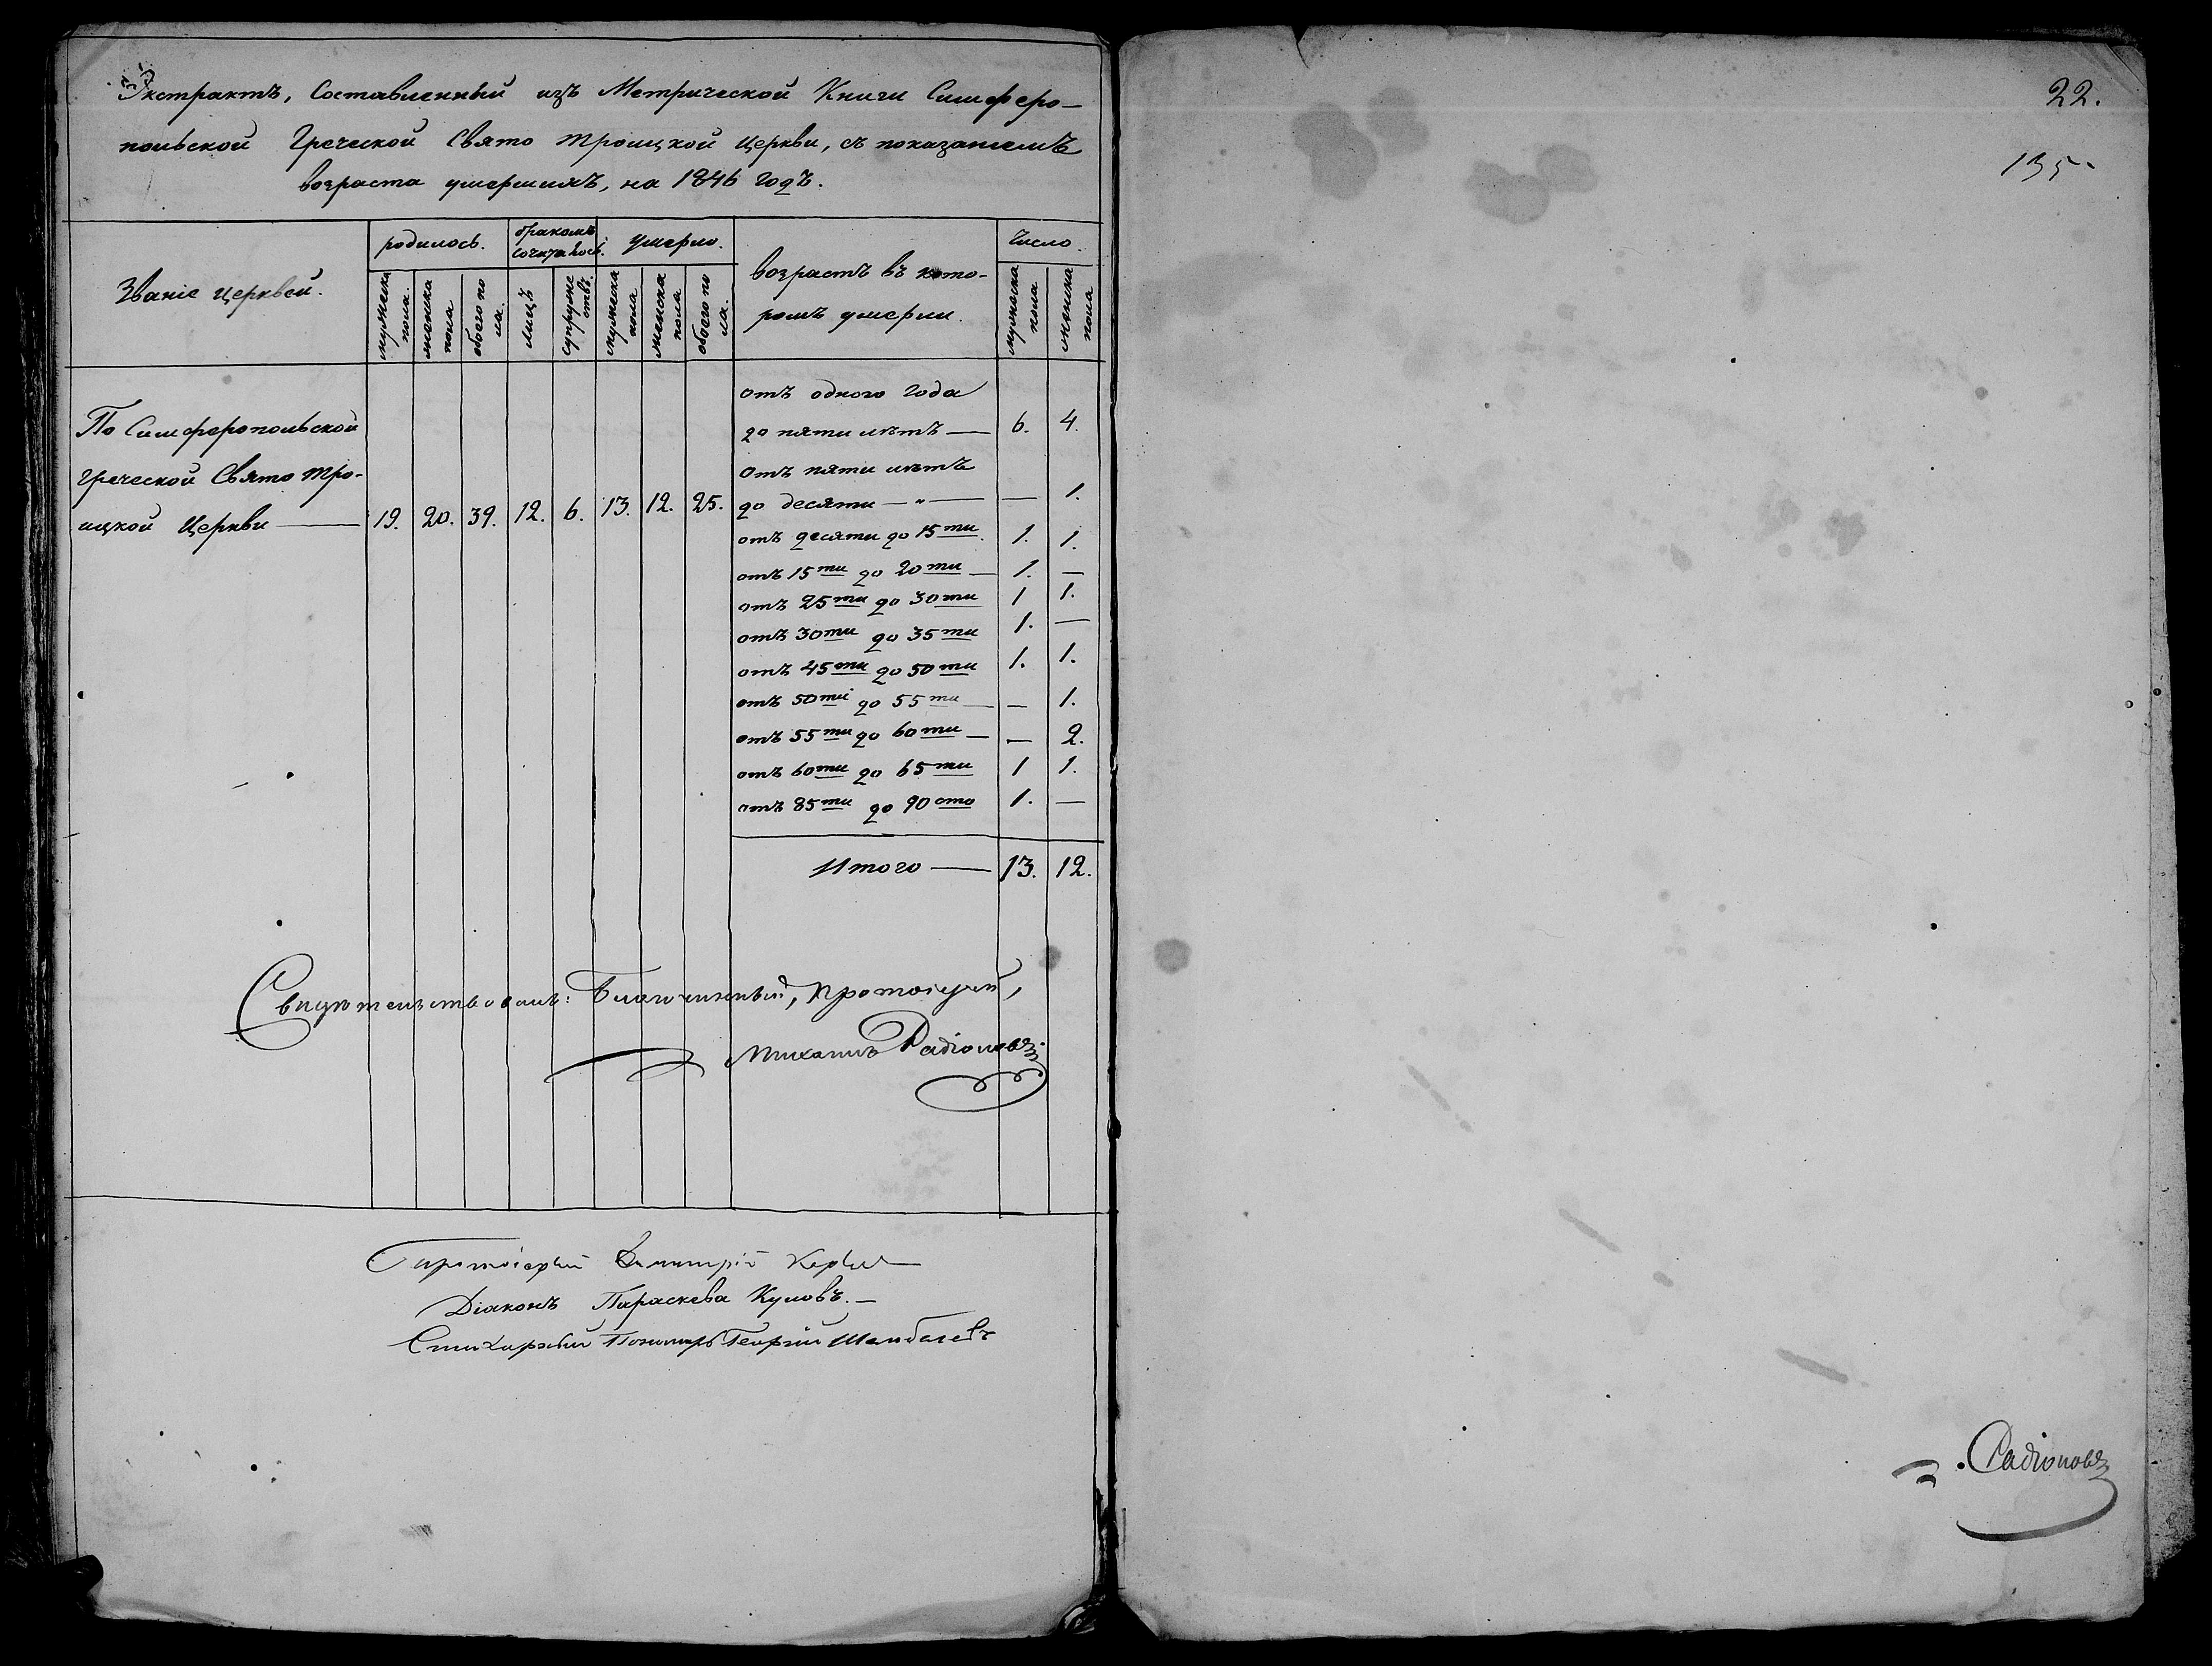 Экстрактъ, Составленный изъ Метрической Книги Симферо-
польской Греческой Свято Троицкой Церкви, съ показаніемъ
возраста умершихъ, на 1846 годъ.
Званіе церквей.
родилось.
бракомъ сочеталось.
умерло.
возрастъ въ кото-
ромъ умерли.
Число.
мужеска пола.
женска пола
обоего по ла.
лицъ
супруже ствъ.
мужеска пола
женска пола
обоего по ла.
мужеска пола
женска пола
По Симферопольской
Греческой Свято Тро-
ицкой Церкви — 19. 20. 39. 12. 6. 13. 12. 25.
отъ одного года
до пяти лѣтъ — 6. 4.
отъ пяти лѣтъ
до десяти — „ — — 1.
отъ десяти до 15ти. 1. 1.
отъ 15ти до 20ти — 1. —
отъ 25ти до 30ти 1 1.
отъ 30ти до 35ти 1. —
отъ 45ти до 50ти 1. 1.
отъ 50ти до 55ти — — 1.
отъ 55ти до 60ти — — 2.
отъ 60ти до 65ти 1 1.
отъ 85ти до 90сто 1. —
Итого — 13. 12.
Свидѣтельствовалъ: Благочинный, Протоіерей,
Михаилъ Радіоновъ.
Протоіерей Димитрій
Діаконъ Параскева Куповъ. —
Стихарный Пономарь Георгій
22.
135.
Радіоновъ